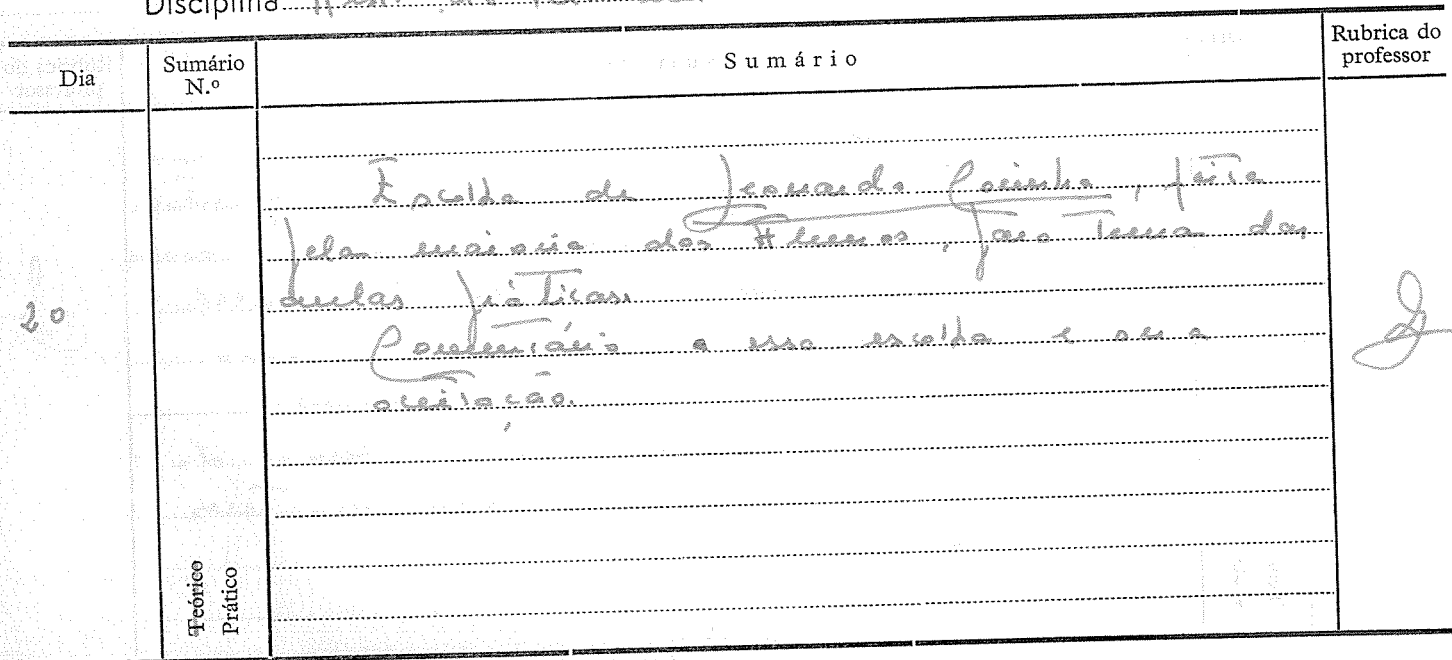 Disciplina
Dia
Sumário N.º
Sumário
Rubrica do professor
Escolha de Leonardo Coimbra, feita
pela maioria dos Alunos, para Tema das
aulas práticas.
20
Comentário a essa escolha e sua
aceitação.
Teórico
Prático